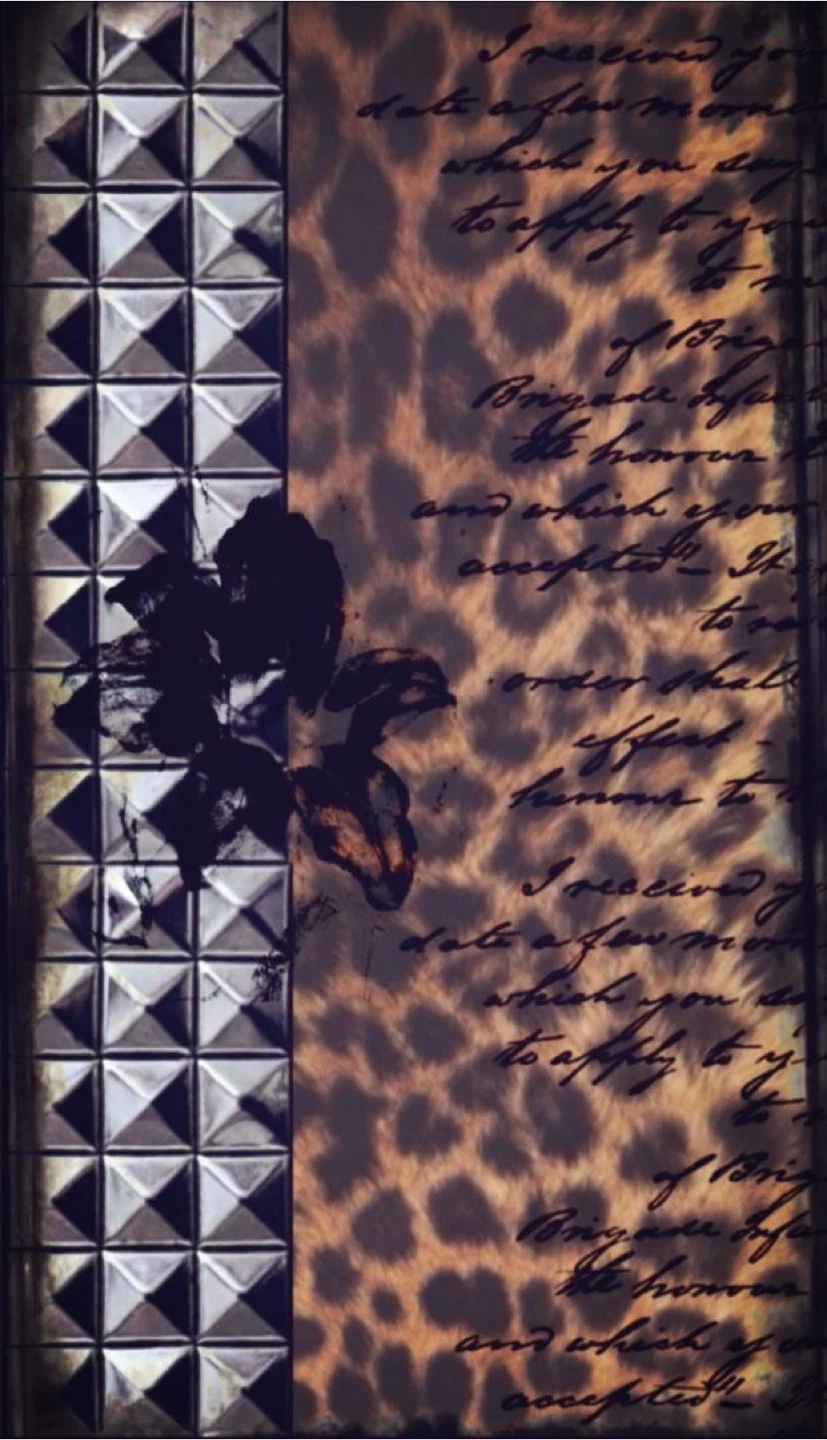 I received
date a few
which you say
to apply to
to
of
Brigade
the honour
and which your
accepted" –
to
order shall
effect -
honour to
I received
date a few
which you
to apply to
to
of
Brigade
the honour
and which
accepted" –